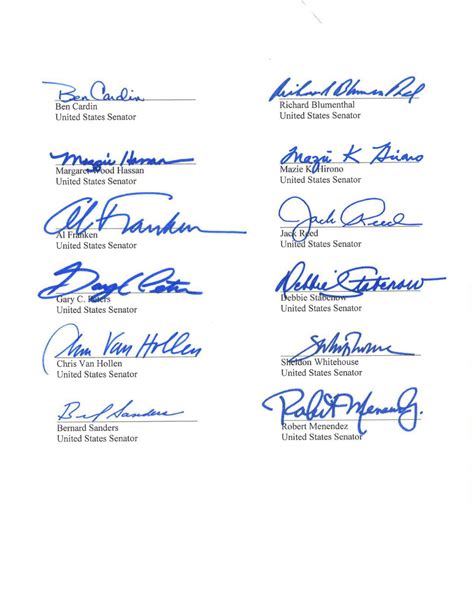 Ben Cardin
Ben Cardin
United States Senator
Richard Blumenthal
Richard Blumenthal
United States Senator
Maggie Hassan
Margaret Wood Hassan
United States Senator
Mazie K Hirono
Mazie K Hirono
United States Senator
Al Franken
Al Franken
United States Senator
Jack Reed
Jack Reed
United States Senator
Gary C. Peters
United States Senator
Debbie Stabenow
Debbie Stabenow
United States Senator
Chris Van Hollen
Chris Van Hollen
United States Senator
Sheldon Whitehouse
United States Senator
Sanders
Bernard Sanders
United States Senator
Robert Menendez
Robert Menendez
United States Senator